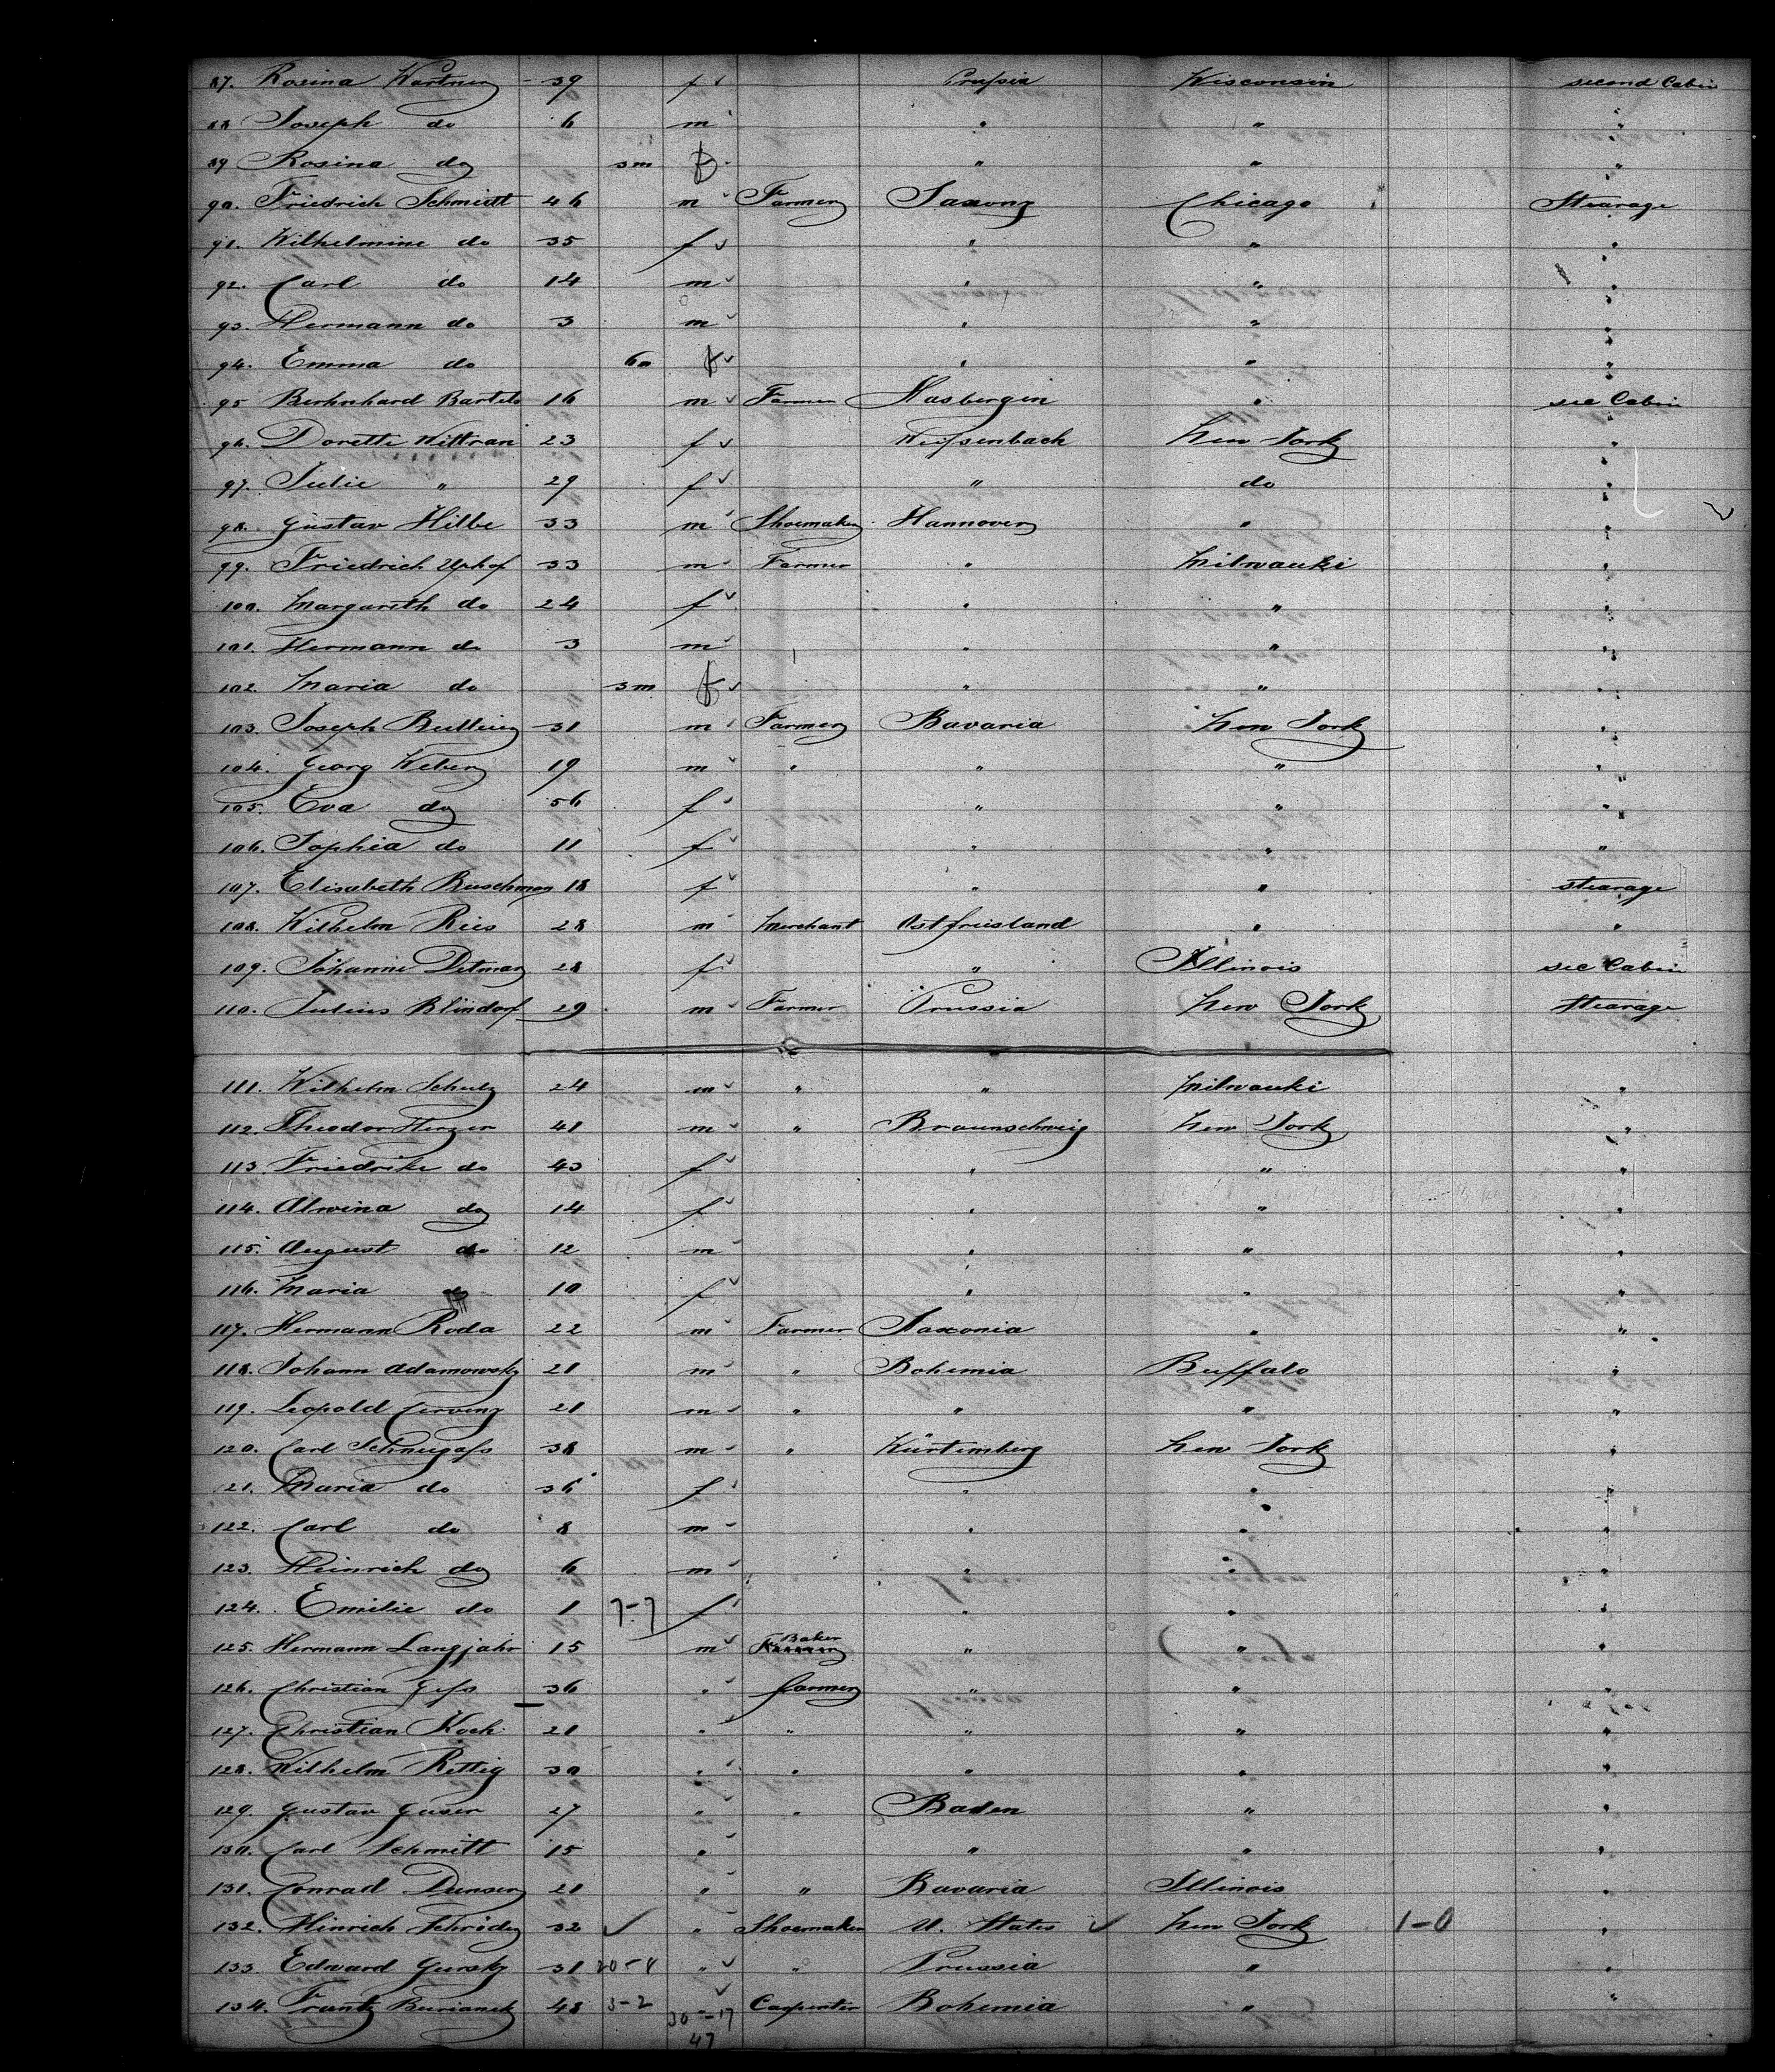 87. Rosina Wartner - 39 f Prussia Wisconsin second Cabin
88 Joseph do 6 m " " "
89 Rosina do 3m f " " "
90. Friedrich Schmidt 46 m Farmer Saxony Chicago Stearage
91. Wilhelmine do 35 f " " "
92. Carl do 14 m " " "
93. Hermann do 3 m " " "
94. Emma do 6m f " " "
95 Bernhard Bartels 16 m Farmer Hasbergen " sec Cabin
96. Dorette Wittran 23 f Weissenbach New York "
97. Julie " 29 f " do "
98. Gustav Hilbe 33 m Shoemaker Hannover " "
99. Friedrich Uphof 33 m Farmer " Milwauki "
100. Margareth do 24 f " " "
101. Hermann do 3 m " " "
102. Maria do 3m f " " "
103. Joseph 31 m Farmer Bavaria New York "
104. Georg Weber 19 m " " " "
105. Eva do 56 f " " "
106. Sophia do 11 f " " "
107. Elisabeth 18 f " " stearage
108. Wilhelm Ries 28 m Merchant Ostfriesland " "
109. Johanne Ditmar 28 f " Illinois sec Cabin
110. Julius Blindorf 29 m Farmer Prussia New York Stearage
111. Wilhelm Schulz 24 m " " Milwauki "
112. Theodor Herzer 41 m " Braunschweig New York "
113. Friedrike do 43 f " " "
114. Alwina do 14 f " " "
115. August do 12 m " " "
116. Maria do 10 f " " "
117. Hermann Roda 22 m Farmer Saxonia " "
118. Johann Adamowsky 21 m " Bohemia Buffalo "
119. Leopold Cerveny 21 m " " " "
120. Carl Schneegass 38 m " Würtemberg New York "
121. Maria do 36 f " " "
122. Carl do 8 m " " "
123. Heinrich do 6 m " " "
124. Emilie do 1 7-7 f " " "
125. Hermann Langjahr 15 m Baker " " "
126. Christian 36 " farmer " " "
127. Christian Koch 21 " " " " "
128. Wilhelm Rettig 30 " " " " "
129. Gustav Geiser 27 " " Baden " "
130. Carl Schmitt 15 " " " "
131. Conrad 21 " " Bavaria Illinois "
132. Hinrich Schröder 32 " Shoemaker U. States New York 1-0 "
133. Edward Gursky 31 20-8 " " Prussia " "
134. Frantz Burianek 48 3-2 " Carpenter Bohemia " "
30-17
47